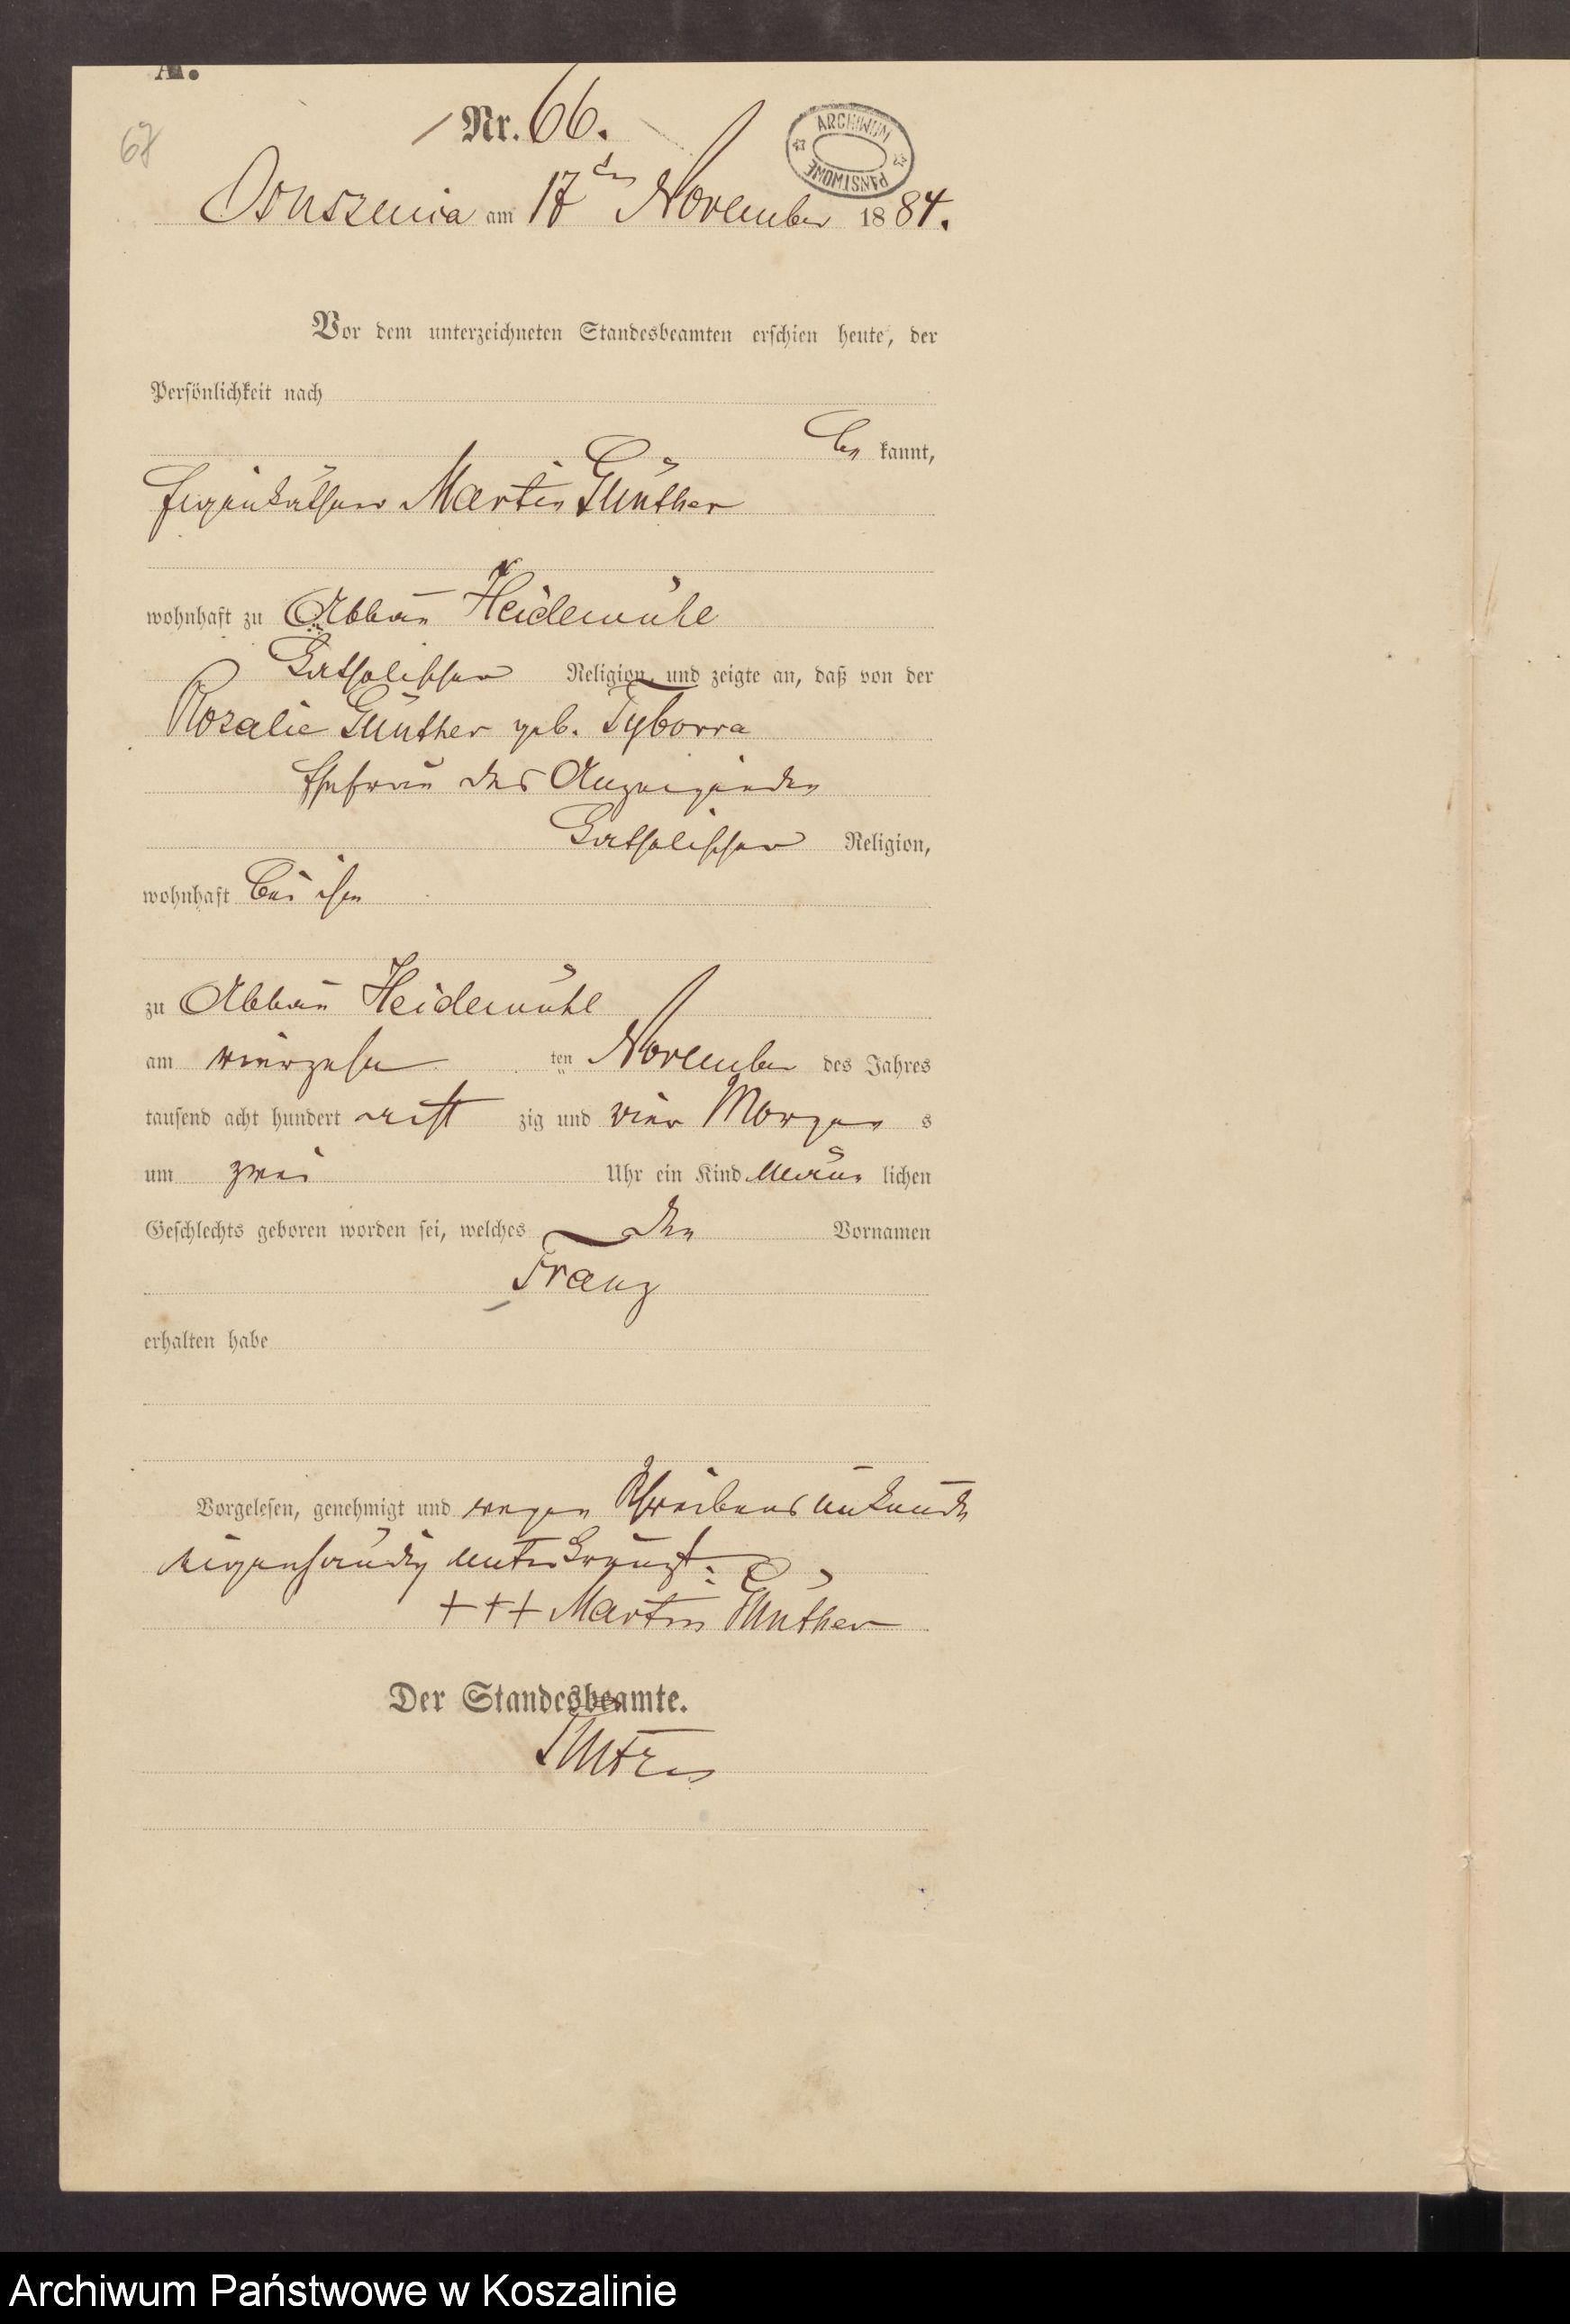 A.
67
Nr. 66.
ARCHIWUM PAŃSTWOWE
Osuszenica am 17ten November 1884.
Vor dem unterzeichneten Standesbeamten erschien heute, der
Persönlichkeit nach
be kannt,
Eigenkäthner Martin Günther
wohnhaft zu Abbau Heidemühl
katholischer Religion, und zeigte an, daß von der
Rosalie Günther geb. Tyborra
Ehefrau des Anzeigenden
katholischer Religion,
wohnhaft bei ihm
zu Abbau Heidemühl
am vierzehn ten November des Jahres
tausend acht hundert acht zig und vier Morgen s
um zwei Uhr ein Kind männ lichen
Geschlechts geboren worden sei, welches den Vornamen
Franz
erhalten habe
Vorgelesen, genehmigt und wegen Schreibensunkunde
eigenhändig unterkreuzt.
+++ Martin Günther
Der Standesbeamte.
Archiwum Państwowe w Koszalinie